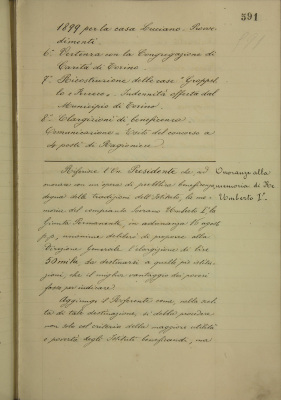 591
1899 per la casa Luciano. Provve
dimenti.
6° Vertenza con la Congregazione di
Carità di Torino.
7° Ricostruzione delle case "Groppel
lo e Indennità offerta dal
Municipio di Torino.
8° Elargizioni di beneficenza.
Comunicazione. Esito del concorso a
posti di Ragioniere.
Riferisce l'On. Presidente che ad
onorare con un'opera di pubblica beneficenza,
degna delle tradizioni dell'Istituto, la me
moria del compianto Sovrano Umberto I, la
Giunta Permanente, in adunanza 15 agosto
p.p., unanime deliberò di proporre alla
Direzione Generale l'elargizione di lire
50 mila da destinarsi a quelle più istitu
zioni, che il miglior vantaggio dei poveri
facesse indicare.
Aggiunge il Referente come, nella scel
ta di tale destinazione, si debba procedere
non solo col criterio della maggiore utilità
e povertà degli Istituti beneficandi, ma
Onoranze alla
memoria di Re
Umberto I°.